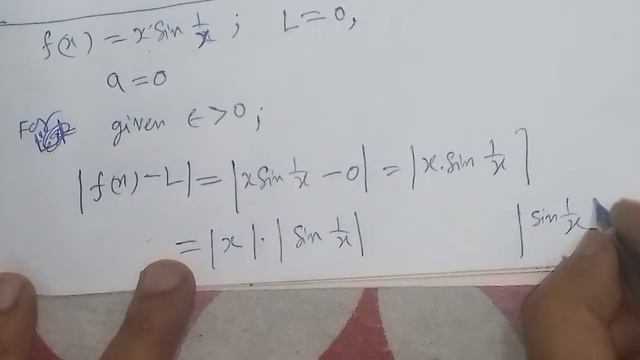 f(x) = x sin 1/x ; L = 0,
a = 0
For given ϵ > 0 ;
|f(x) - L| = |x sin 1/x - 0| = |x. sin 1/x|
= |x| · |sin 1/x| |sin 1/x